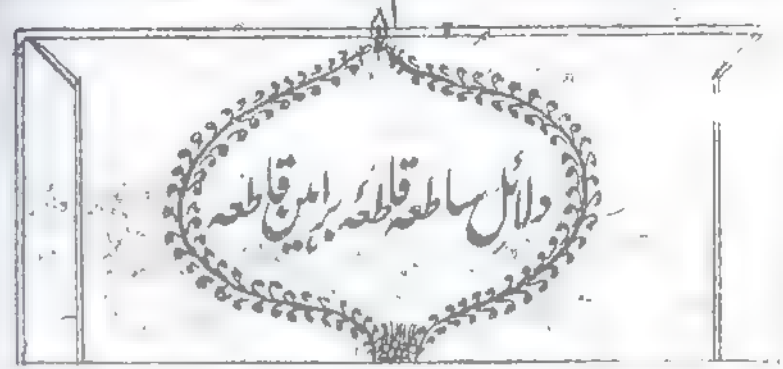 دلائل ساطعہ قاطعۂ براہین قاطعہ